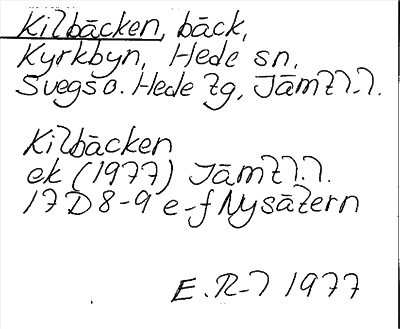 Kilbäcken, bäck,
Kyrkbyn, Hede sn,
Svegs o. Hede tg, Jämtl.l.
Kilbäcken
ek (1977) Jämtl.l.
17D 8-9 e-f Nysätern
E.R-l 1977